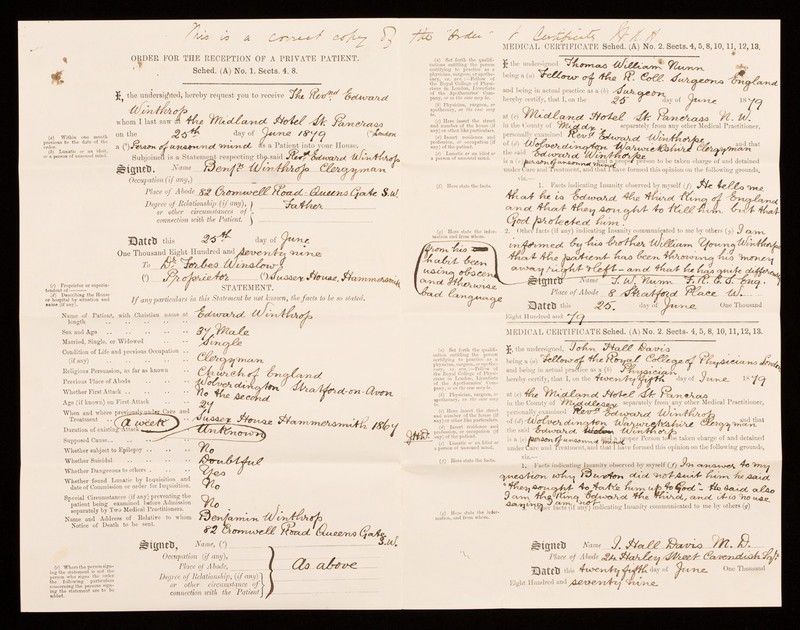 This is a correct copy of the "Order" & Certificates
ORDER FOR THE RECEPTION OF A PRIVATE PATIENT.
Sched. (A) No. 1. Sects. 4. 8.
I, the undersigned, hereby request you to receive The Revnd Edward
Winthrop
whom I last saw at the Midland Hotel St. Pancrass
on the 25th day of June 1879 London
a (b) Person of unsound mind as a Patient into your House.
Subjoined is a Statement respecting the said Revd Edward Winthrop
Signed, Name Benjn Winthrop Clergyman
Occupation (if any,)
Place of Abode 82 Cromwell Road - Queens Gate S.W.
Degree of Relationship (if any), Father
or other circumstances of
connection with the Patient.
Dated this 25th day of June
One Thousand Eight Hundred and seventy nine
To Dr. Forbes Winslow
(c) Proprietor (d) Sussex House, Hammersmith
STATEMENT.
If any particulars in this Statement be not known, the facts to be so stated.
(a) Within one month previous to the date of the order.
(b) Lunatic or an idiot, or a person of unsound mind.
(c) Proprietor or superintendent of
(d) Describing the House or hospital by situation and name (if any).
Name of Patient, with Christian name at length Edward Winthrop
Sex and Age 37 Male
Married, Single, or Widowed Single
Condition of Life and previous Occupation (if any) Clergyman
Religious Persuasion, so far as known Church of England
Previous Place of Abode Wolverdington Stratford-on-Avon
Whether First Attack No the second
Age (if known) on First Attack 24
When and where previously under Care and Treatment Sussex House Hammersmith 1864
Duration of existing Attack (a week) Unknown
Supposed Cause
Whether subject to Epilepsy No
Whether Suicidal Doubtful
Whether Dangerous to others Yes
Whether found Lunatic by Inquisition and date of Commission or order for Inquisition. No
Special Circumstances (if any) preventing the patient being examined before Admission separately by Two Medical Practitioners. No
Name and Address of Relative to whom Notice of Death to be sent. Benjamin Winthrop
82 Cromwell Road Queens Gate
S.W.
Signed, Name, (e)
Occupation (if any),
Place of Abode, As above
Degree of Relationship, (if any)
or other circumstance of
connection with the Patient
(e) Where the person signing the statement is not the person who signs the order the following particulars concerning the person signing the statement are to be added.
MEDICAL CERTIFICATE Sched. (A) No. 2. Sects. 4, 5, 8, 10, 11, 12, 13.
I, the undersigned Thomas William Nunn
being a (a) Fellow of the R. Coll Surgeons England
and being in actual practice as a (b) Surgeon
hereby certify, that I, on the 25 day of June 1879
at (c) Midland Hotel St. Pancras N. W.
in the County of Middx separately from any other Medical Practitioner,
personally examined Revd Edward Winthrop
of (d) Wolverdington Warwickshire Clergyman and that
the said Edward Winthrope
is a (e) person of unsound mind and a proper Person to be taken charge of and detained
under Care and Treatment, and that I have formed this opinion on the following grounds,
viz.—
1. Facts indicating Insanity observed by myself (f) He tells me
that he is Edward the third King of England
and that they sought to kill him but that
God protected him.
2. Other facts (if any) indicating Insanity communicated to me by others (g) I am
informed by his brother William Young Winthrop
that the patient has been throwing his money
away right & left - and that he has quite different
from his
habits been
using obscene
and otherwise
bad language
Signed Name T. W. Nunn F.R.C.S. Eng.
Place of Abode 8 Stratford Place W.
Dated this 25. day of June One Thousand
Eight Hundred and 79
MEDICAL CERTIFICATE Sched. (A) No. 2. Sects. 4, 5, 8, 10, 11, 12, 13.
I, the undersigned, John Hall Davis
being a (a) Fellow of the Royal College of Physicians London
and being in actual practice as a (b) Physician
hereby certify, that I, on the twenty fifth day of June 1879
at (c) the Midland Hotel St Pancras
in the County of Middlesex separately from any other Medical Practitioner,
personally examined Revd Edward Winthrop
of (d) Wolverdington Warwickshire Clergyman and that
the said Edward Winthrop
is a (e) person of unsound mind and a proper Person to be taken charge of and detained
under Care and Treatment, and that I have formed this opinion on the following grounds,
viz.—
1. Facts indicating Insanity observed by myself (f) In answer to my
question why Buxton did not suit him he said
"They sought to take him up to God". He said also
I am the King Edward the third, and it is no use
saying I am not"
2. Other facts (if any) indicating Insanity communicated to me by others (g)
Signed Name J. Hall Davis M. D.
Place of Abode 24 Harley Street Cavendish Sqr.
Dated this twenty fifth day of June One Thousand
Eight Hundred and seventy nine